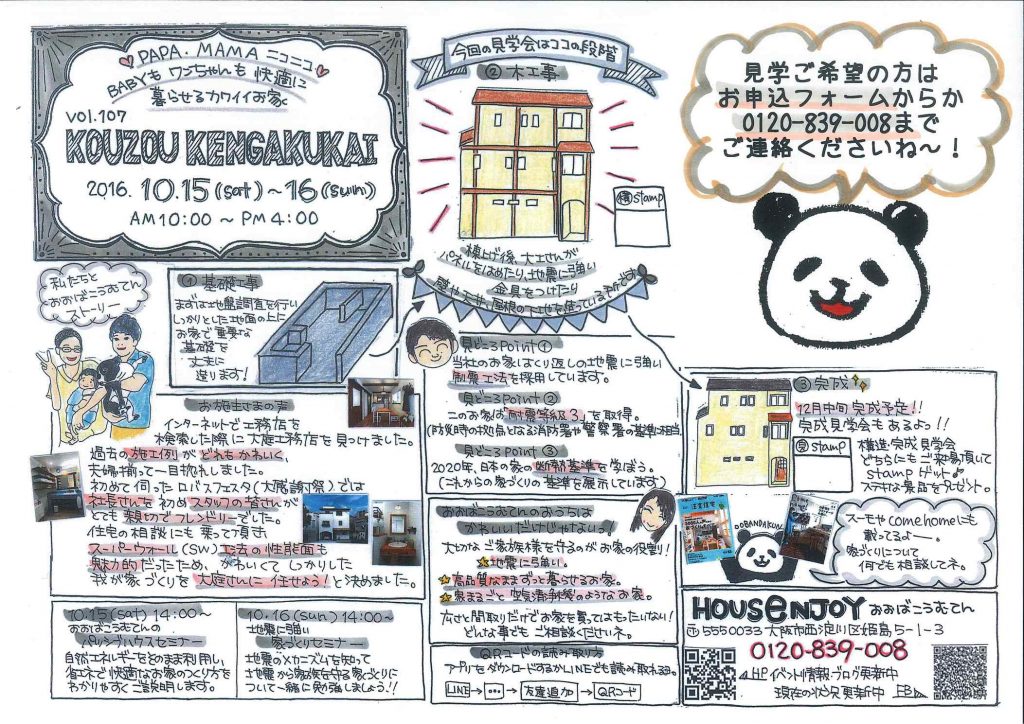 PAPA・MAMA ニコニコ
BABYも ワンちゃんも 快適に
暮らせるカワイイお家
vol.107
KOUZOU KENGAKUKAI
2016. 10.15(sat)〜16(sun)
AM10:00 〜 PM4:00
今回の見学会はココの段階
② 木工事
構 stamp
棟上げ後、大工さんが
パネルをはめたり、地震に強い
金具をつけたり
壁や天井、屋根の下地を造っている予定です
見学ご希望の方は
お申込フォームからか
0120-839-008まで
ご連絡くださいね〜！
私たちと
おおばこうむてん
ストーリー
① 基礎工事
まずは地盤調査を行い
しっかりとした地面の上に
お家で重要な
基礎を
丈夫に
造ります！
お施主さまの声
インターネットで工務店を
検索した際に大庭工務店を見つけました。
過去の施工例がどれもかわいく、
夫婦揃って一目惚れしました。
初めて伺ったロハスフェスタ(大感謝祭)では
社長さんを初めスタッフの皆さんが
とても親切でフレンドリーでした。
住宅の相談にも乗って頂き
スーパーウォール(SW)工法の性能面も
魅力的だったため、かわいくてしっかりした
我が家づくりを大庭さんに任せよう！と決めました。
見どころPoint①
当社のお家はくり返しの地震に強い
制震工法を採用しています。
見どころPoint②
このお家は「耐震等級3」を取得。
(防災時の拠点となる消防署や警察署の基準に相当)
見どころPoint③
2020年、日本の家の断熱基準を学ぼう。
(これからの家づくりの基準を展示しています)
おおばこうむてんのおうちは
かわいいだけじゃないっ！
大切なご家族様を守るのがお家の役割！
★地震に強い。
★高品質なままずっと暮らせるお家。
★家まるごと空気清浄機のようなお家。
広さと間取りだけでお家を買ってはもったいない！
どんな事でもご相談くださいネ。
③ 完成
12月中旬 完成予定！！
完成見学会もあるよう！！
完 stamp
構造・完成見学会
どちらにもご来場頂いて
Stamp ゲット
ステキな景品をプレゼント。
注文住宅
OOBANDAKUN
スーモやcome homeにも
載ってるよー。
家づくりについて
何でも相談してネ。
10.15(sat) 14:00〜
おおばこうむてんの
パッシブハウスセミナー
自然エネルギーをそのまま利用し、
省エネで快適なお家のつくり方を
わかりやすくご説明します。
10.16(sun) 14:00〜
地震に強い
家づくりセミナー
地震のメカニズムを知って
地震から家族を守る家づくりに
ついて一緒に勉強しましょう！！
QRコードの読み取り方
アプリをダウンロードするかLINEでも読み取れるヨ。
LINE → ••• → 友達追加 → QRコード
HOUSENJOY おおばこうむてん
〒5550033 大阪市西淀川区姫島5-1-3
0120-839-008
HPイベント情報・ブログ更新中
現在の状況更新中 FB